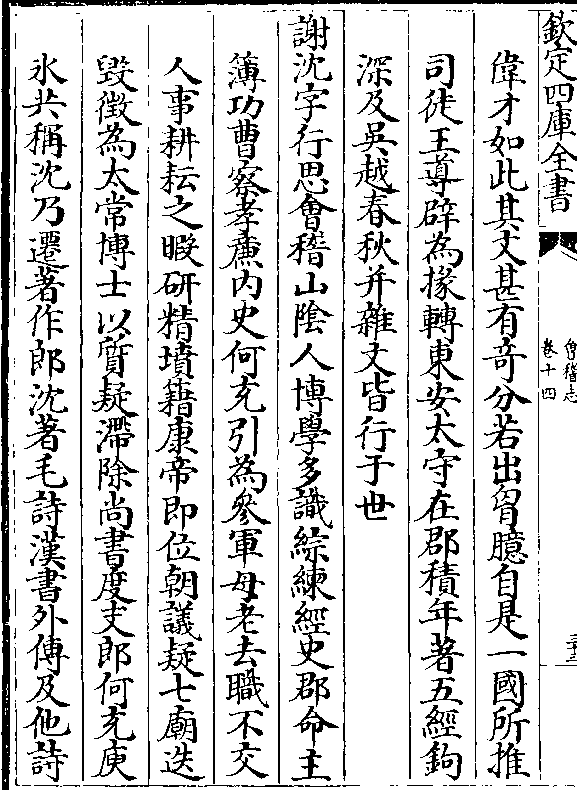 欽定四庫全書
會稽志
卷十四
三十三
偉才如此其文甚有竒分若出胷臆自是一國所推
司徒王導辟為掾轉東安太守在郡積年著五經鉤
深及吳越春秋并雜文皆行于世
謝沈字行思會稽山隂人博學多識綜練經史郡命主
簿功曹察孝亷内史何充引為參軍母老去職不交
人事耕耘之暇研精墳籍康帝即位朝議疑七廟迭
毀徴為太常博士以質疑滯除尚書度支郎何充庾
氷共稱沈乃遷著作郎沈著毛詩漢書外傳及他詩